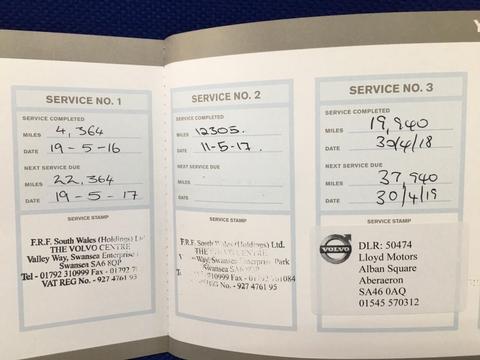 Y
SERVICE NO. 1
SERVICE COMPLETED
MILES 4,364
DATE 19-5-16
NEXT SERVICE DUE
MILES 22,364
DATE 19-5-17
SERVICE STAMP
F.R.F. South Wales (Holdings) Ltd.
THE VOLVO CENTRE
Valley Way, Swansea Enterprise
Swansea SA6 8QP
Tel - 01792 310999 Fax - 01792
VAT REG No. - 927 4761 95
SERVICE NO. 2
SERVICE COMPLETED
MILES 12305.
DATE 11-5-17.
NEXT SERVICE DUE
MILES
DATE
SERVICE STAMP
F.R.F. South Wales (Holdings) Ltd.
THE VOLVO CENTRE
Way, Swansea Enterprise Park
Swansea SA6 8QP
310999 Fax - 01792 761084
REG No. - 927 4761 95
SERVICE NO. 3
SERVICE COMPLETED
MILES 19,940
DATE 30/4/18
NEXT SERVICE DUE
MILES 37,940
DATE 30/4/19
SERVICE STAMP
VOLVO
DLR: 50474
Lloyd Motors
Alban Square
Aberaeron
SA46 0AQ
01545 570312